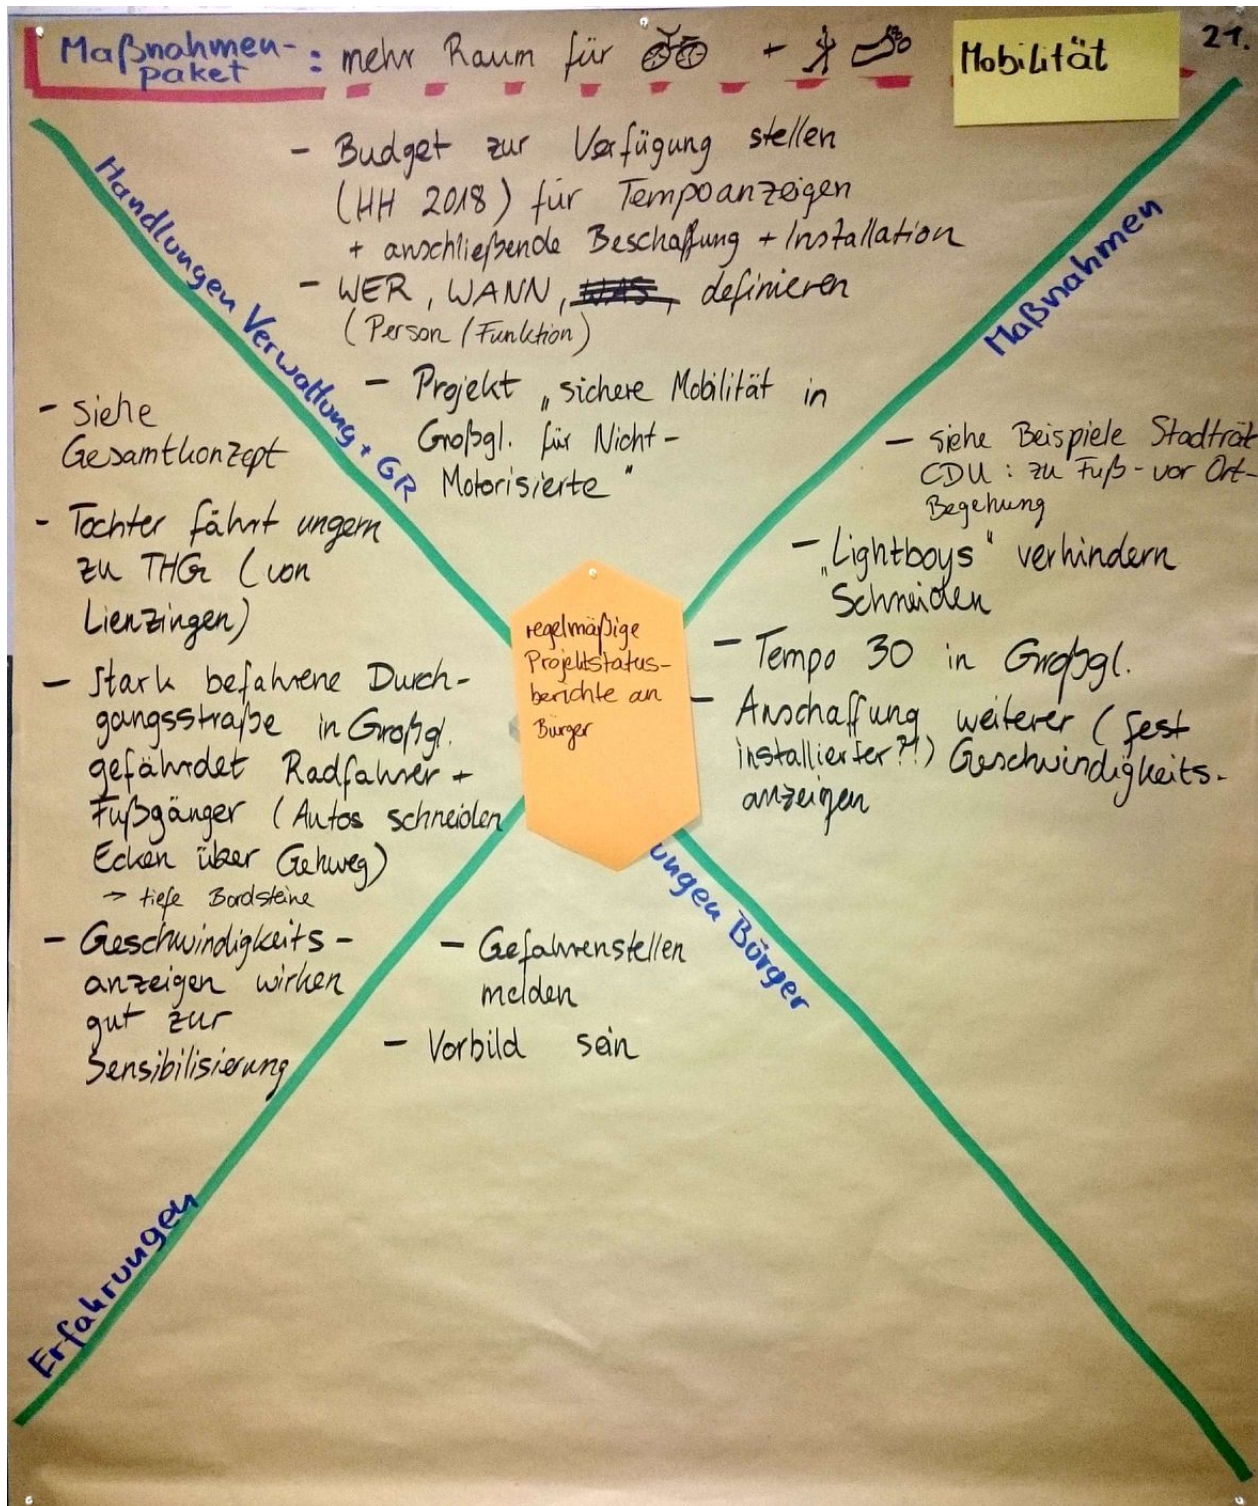 Maßnahmen-
paket : mehr Raum für +
Mobilität
21.
Handlungen Verwaltung + GR
- Budget zur Verfügung stellen
(HH 2018) für Tempoanzeigen
+ anschließende Beschaffung + Installation
- WER, WANN, WAS, definieren
(Person / Funktion)
- Projekt „sichere Mobilität in
Großgl. für Nicht-
Motorisierte"
Maßnahmen
- siehe Beispiele Stadträt
CDU : zu Fuß-vor Ort-
Begehung
- „Lightboys" verhindern
Schneiden
- Tempo 30 in Großgl.
- Anschaffung weiterer (fest
installierter?!) Geschwindigkeits-
anzeigen
regelmäßige
Projektstatus-
berichte an
Bürger
- siehe
Gesamtkonzept
- Tochter fährt ungern
zu THG (von
Lienzingen)
- Stark befahrene Durch-
gangsstraße in Großgl.
gefährdet Radfahrer +
Fußgänger (Autos schneiden
Ecken über Gehweg)
→ tiefe Bordsteine
- Geschwindigkeits-
anzeigen wirken
gut zur
Sensibilisierung
Erfahrungen
ungen Bürger
- Gefahrenstellen
melden
- Vorbild sein